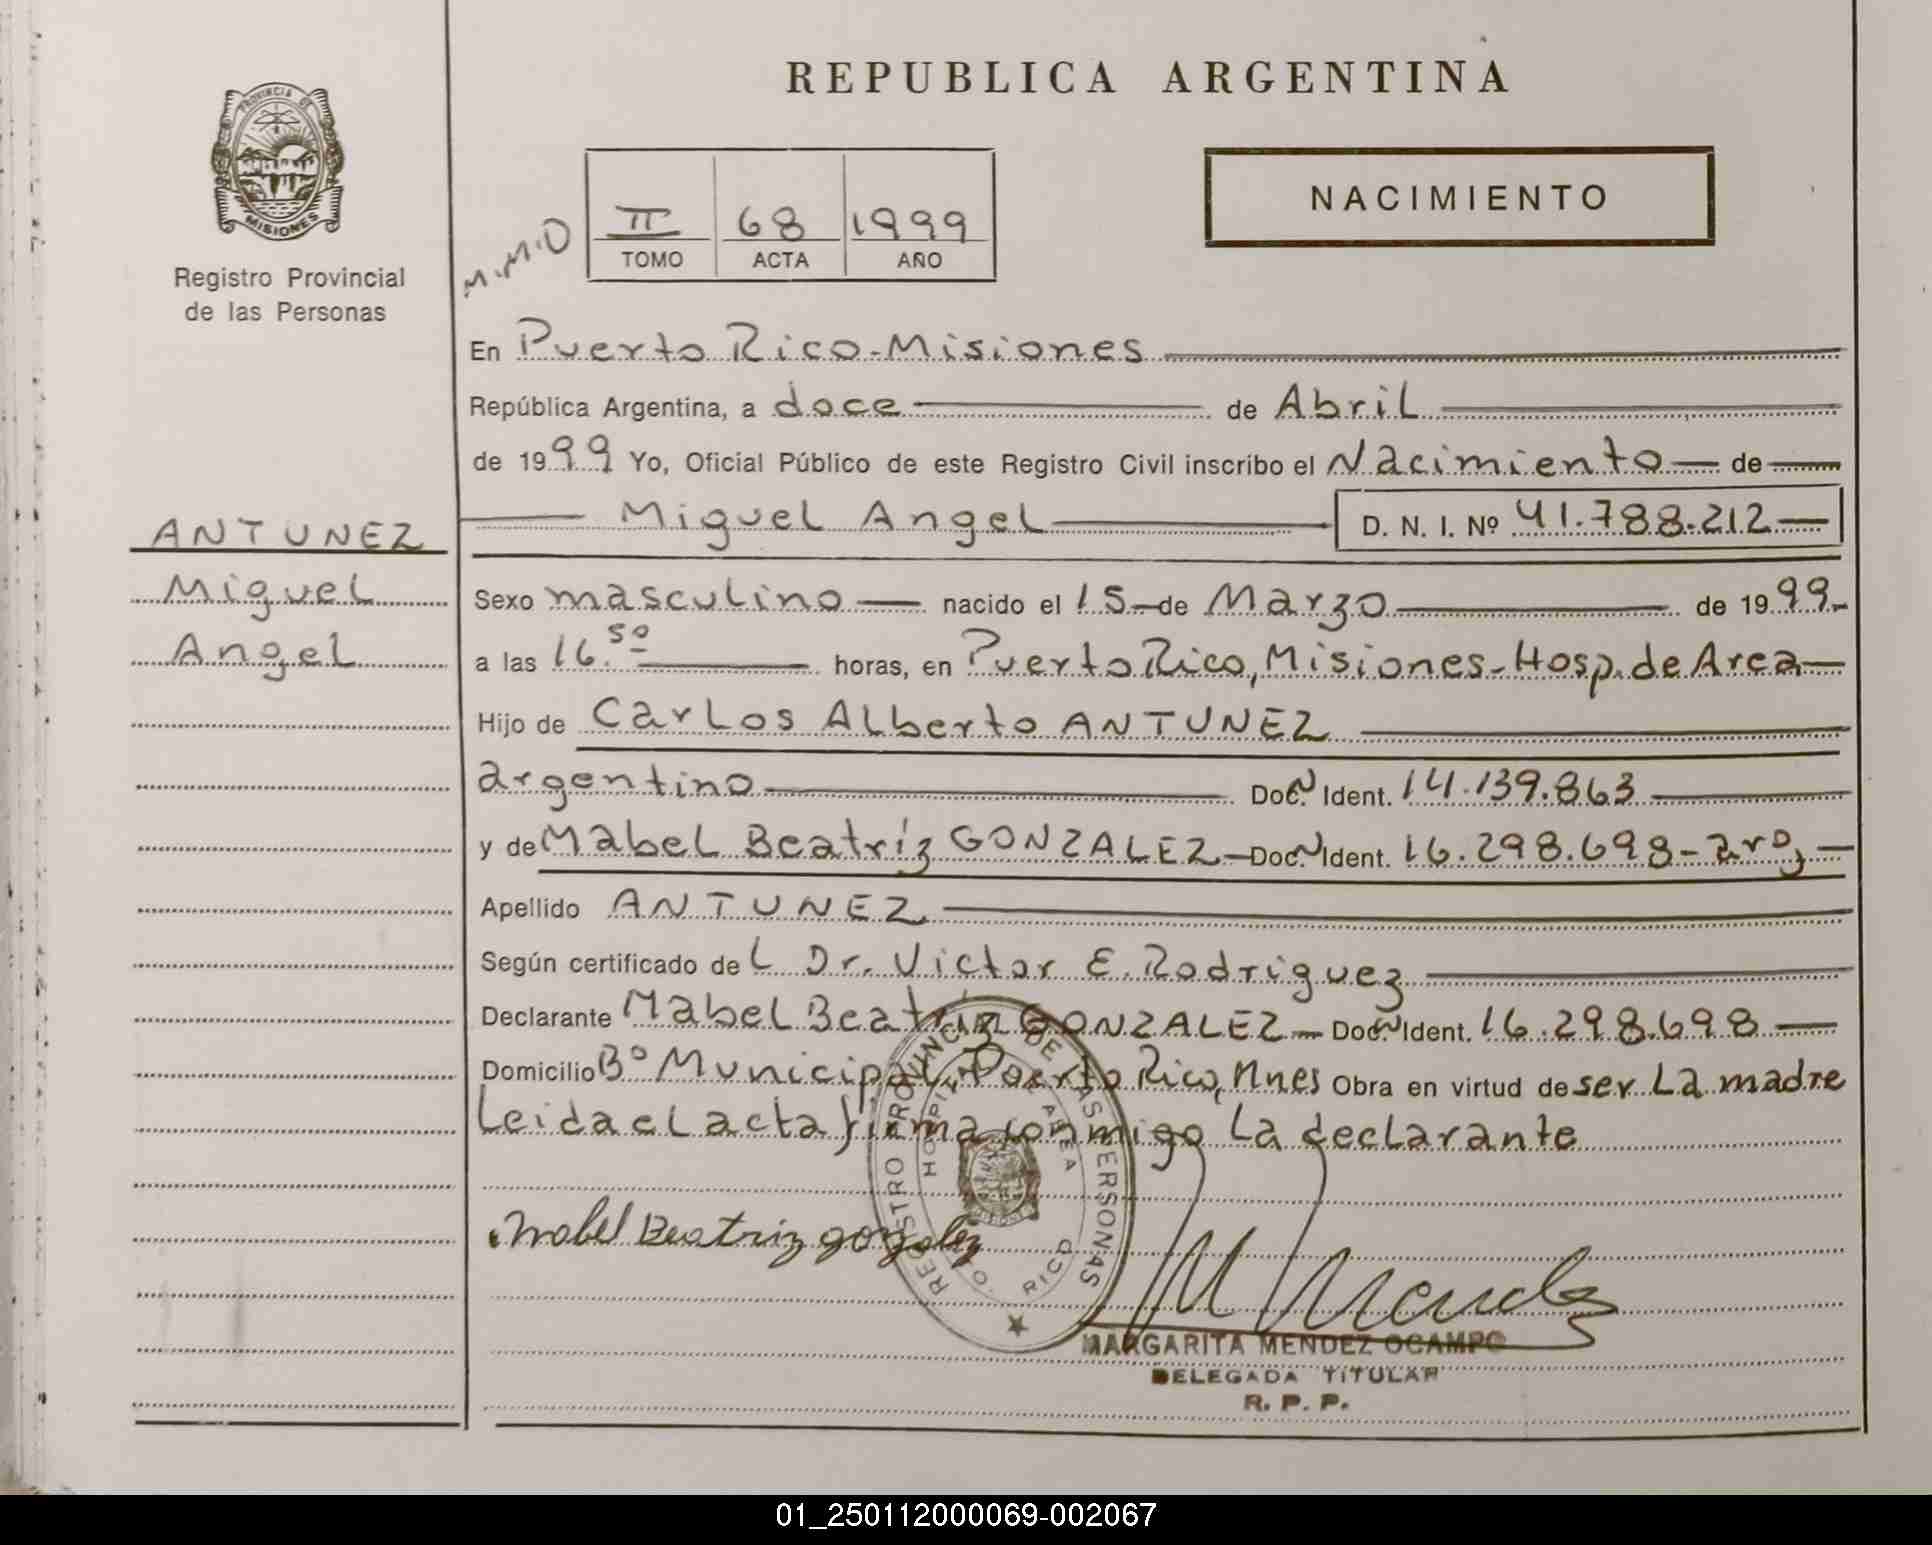 REPUBLICA ARGENTINA
PROVINCIA DE
MISIONES
NACIMIENTO
Registro Provincial
de las Personas
M.M.O
II 68 1999
TOMO ACTA AÑO
En Puerto Rico-Misiones
República Argentina, a doce de Abril
de 1999 Yo, Oficial Público de este Registro Civil inscribo el Nacimiento de
ANTUNEZ
Miguel Angel D. N. I. Nº 41.788.212
Miguel
Sexo masculino nacido el 15 de Marzo de 1999
Angel
a las 16.50 horas, en Puerto Rico, Misiones-Hosp. de Area
Hijo de Carlos Alberto ANTUNEZ
argentino Doc. N Ident. 14.139.863
y de Mabel Beatríz GONZALEZ Doc. N Ident. 16.298.698-arg,
Apellido ANTUNEZ
Según certificado del Dr. Victor E. Rodriguez
Declarante Mabel Beatríz GONZALEZ Doc. N Ident. 16.298.698
Domicilio Bº Municipal, Puerto Rico, Mnes Obra en virtud de ser La madre
Leida el acta firma conmigo La declarante
REGISTRO PROVINCIAL DE LAS PERSONAS
HOSPITAL DE AREA
PTO. RICO
Mabel Beatriz gonzalez
M Mendez
MARGARITA MENDEZ OCAMPO
DELEGADA TITULAR
R. P. P.
01_250112000069-002067